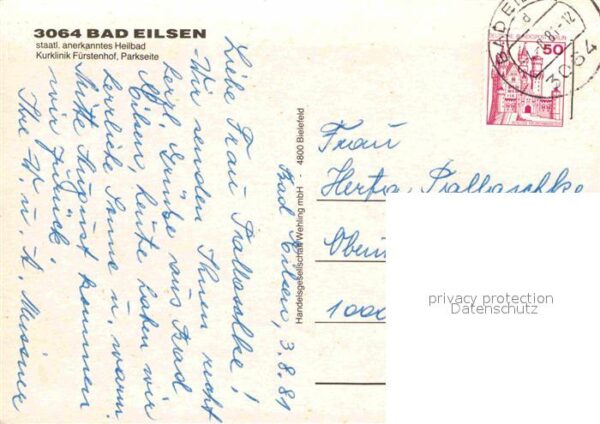 3064 BAD EILSEN
staatl. anerkanntes Heilbad
Kurklinik Fürstenhof, Parkseite
Bad Eilsen, 3.8.81
Liebe Frau Prallaschke!
Wir senden Ihnen recht
herzl. Grüße aus Bad
Eilsen, heute haben wir
herrliche Sonne u. warm.
Mitte August kommen
wir zurück!
Ihre W. u. A.
Handelsgesellschaft Wehling mbH - 4800 Bielefeld
BAD EIL
d
8.81-12
3064
DEUTSCHE BUNDESPOST BERLIN
50
Frau
Herta Prallaschke
1000
privacy protection
Datenschutz